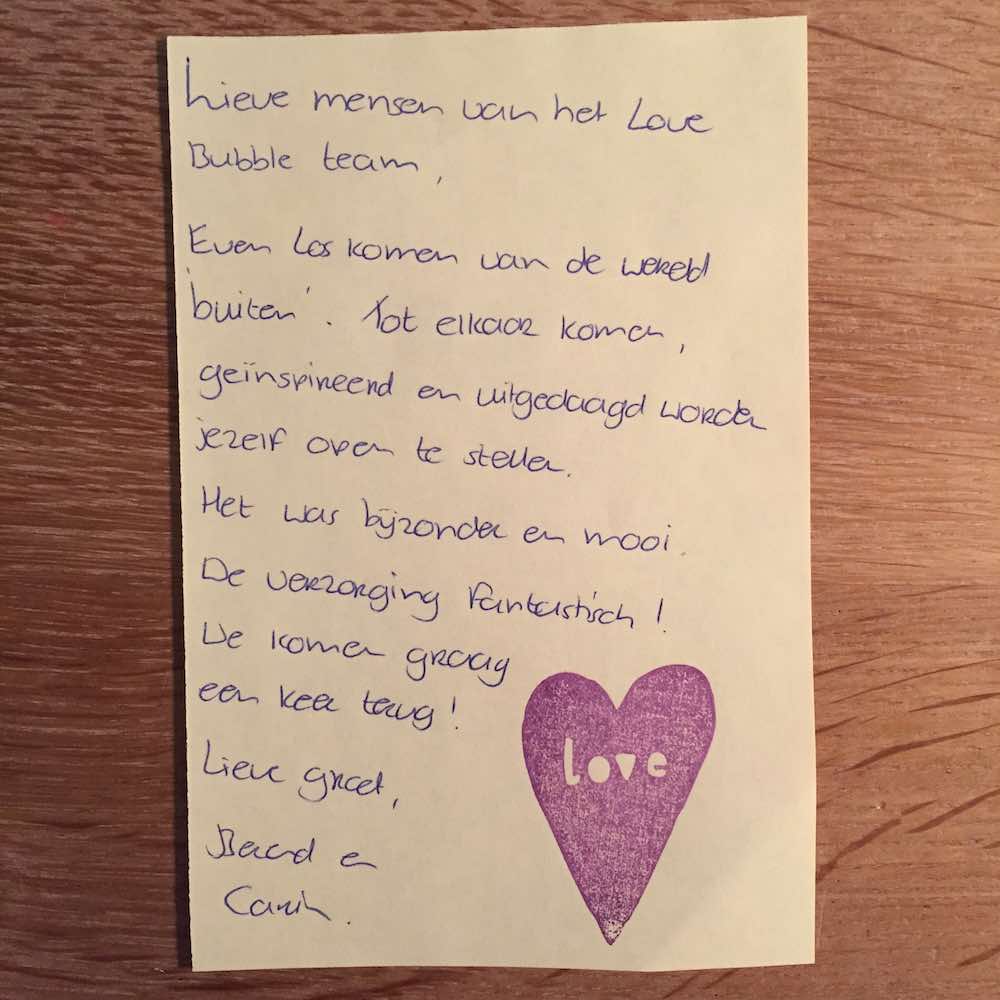 Lieve mensen van het Love
Bubble team,
Even los komen van de wereld
'buiten'. Tot elkaar komen,
geïnspireerd en uitgedaagd worden
jezelf open te stellen.
Het was bijzonder en mooi.
De verzorging fantastisch!
We komen graag
een keer terug!
Lieve groet,
en
love